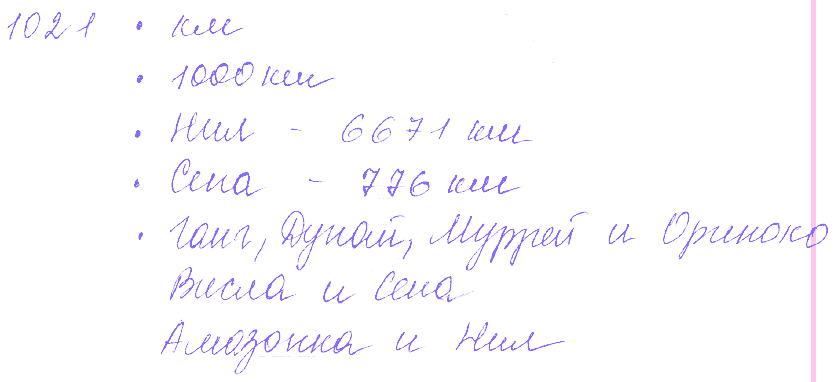 1021 • км
• 1000 км
• Нил - 6671 км
• Сена - 776 км
• Ганг, Дунай, Муррей и Ориноко
Висла и Сена
Амазонка и Нил